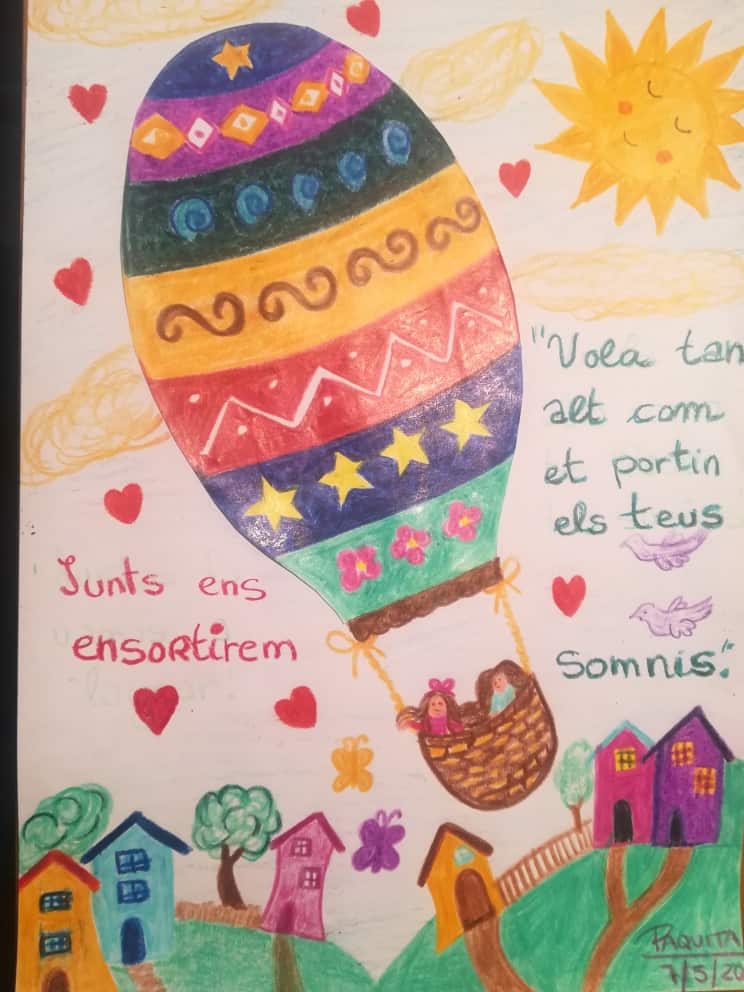 "Vola tan
alt com
et portin
els teus
somnis."
Junts ens
ensortirem
PAQUITA
7/5/20